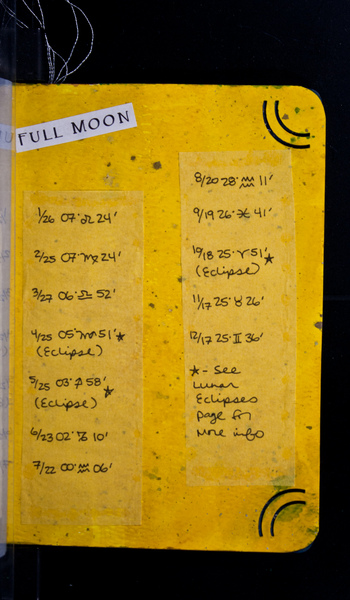 FULL MOON
1/26 07°♌24'
2/25 07°♍24'
3/27 06°♎52'
4/25 05°♏51'★
(Eclipse)
5/25 03°♐58'★
(Eclipse)
6/23 02°♑10'
7/22 00°♒06'
8/20 28°♒11'
9/19 26°♓41'
10/18 25°♈51'★
(Eclipse)
11/17 25°♉26'
12/17 25°♊36'
★- See
Lunar
Eclipses
page for
more info